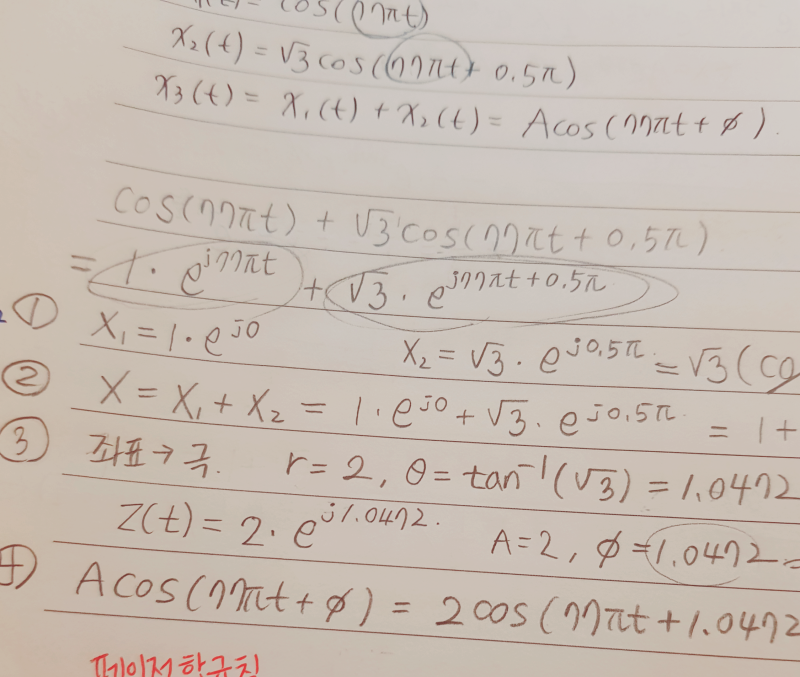 = cos(77πt)
x₂(t) = √3 cos(77πt + 0.5π)
x₃(t) = x₁(t) + x₂(t) = Acos(77πt + φ).
cos(77πt) + √3 cos(77πt + 0.5π)
= 1 · e^{j77πt} + √3 · e^{j77πt + 0.5π}
① X₁ = 1 · e^{j0} X₂ = √3 · e^{j0.5π} = √3 (co
② X = X₁ + X₂ = 1 · e^{j0} + √3 · e^{j0.5π} = 1 +
③ 좌표 → 극. r = 2, θ = tan⁻¹(√3) = 1.0472
Z(t) = 2 · e^{j1.0472}. A = 2, φ = 1.0472
④ Acos(77πt + φ) = 2cos(77πt + 1.0472
페이저한규칙